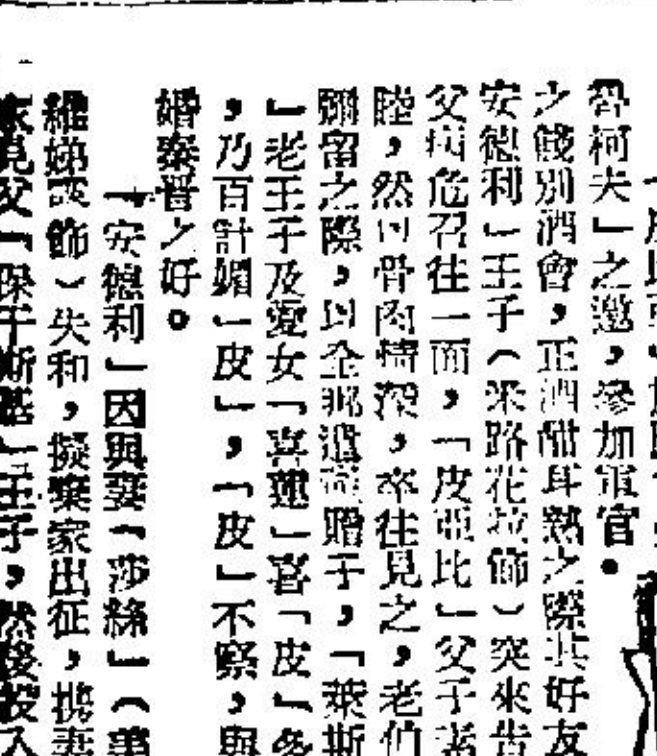 柯夫」之邀，參加軍官。
之餞別酒會，正酒酣耳熱之際其好友
安德利」王子（米路花拉飾）突來告
父病危召往一面，「皮亞比」父子素
陸，然以骨肉情深，卒往見之，老伯
彌留之際，以全部遺產贈予，「萊斯
」老王子及愛女「喜蓮」喜「皮」多
，乃百計媚「皮」，「皮」不察，與
婚秦晉之好。
「安德利」因與妻「莎絲」（
維娣飾）失和，擬棄家出征，携妻
家見父「保干斯基」王子，然後投入